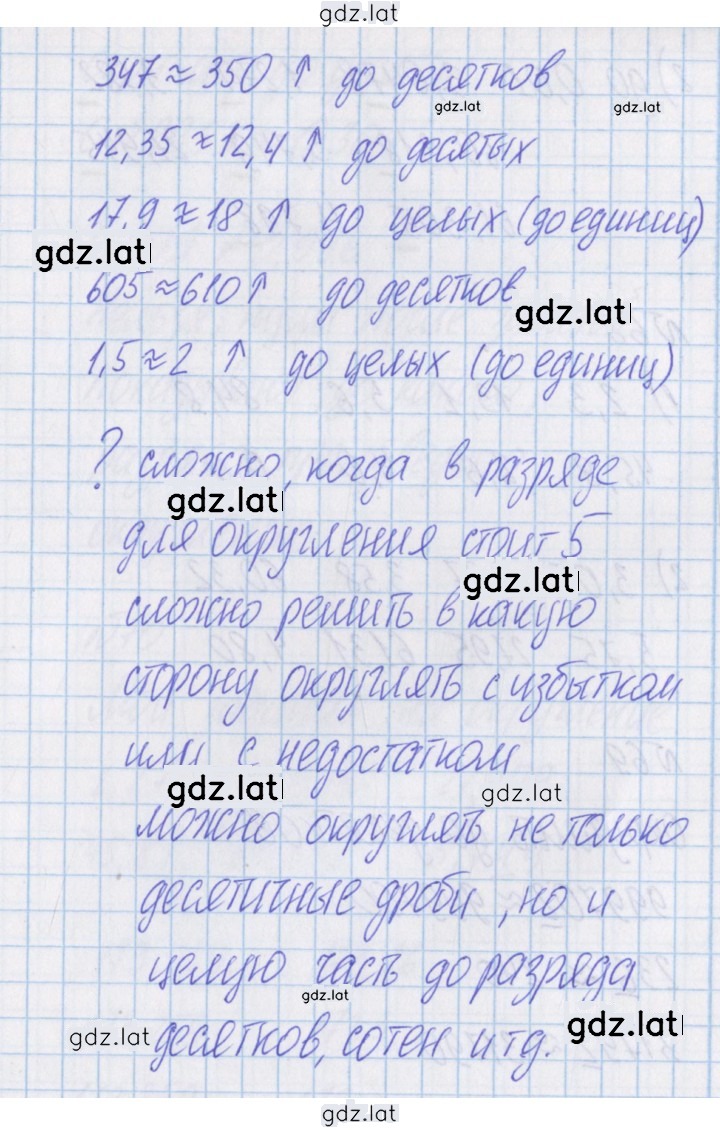 gdz.lat
347 ≈ 350 ↑ до десятков
gdz.lat gdz.lat
12,35 ≈ 12,4 ↑ до десятых
17,9 ≈ 18 ↑ до целых (до единиц)
gdz.lat
605 ≈ 610 ↑ до десятков
gdz.lat
1,5 ≈ 2 ↑ до целых (до единиц)
? сложно, когда в разряде
gdz.lat
для округления стоит 5
gdz.lat
сложно решить в какую
сторону округлять с избытком
или с недостатком
gdz.lat gdz.lat
можно округлять не только
десятичные дроби, но и
целую часть до разряда
gdz.lat
gdz.lat десятков, сотен и тд. gdz.lat
gdz.lat